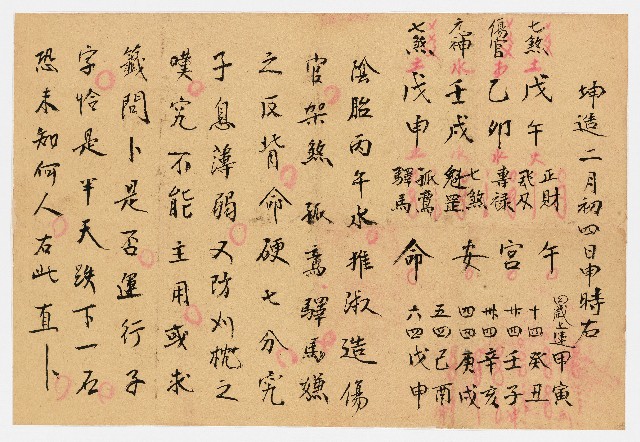 坤造二月初四日申時右
七煞土戊午火正財飛刃
傷官木乙卯木專祿
元神水壬戌七煞魁罡
七煞土戊申土孤鸞驛馬
午宮安命
四歲上運甲寅
十四癸丑
廿四壬子
卅四辛亥
四四庚戌
五四己酉
六四戊申
陰胎丙午水推淑造傷
官架煞孤鸞驛馬嫌
之反背命硬七分究
子息薄弱又防刈枕之
嘆究不能主用或求
籤問卜是否運行子
字恰是半天跌下一石
恐未知何人右此直卜